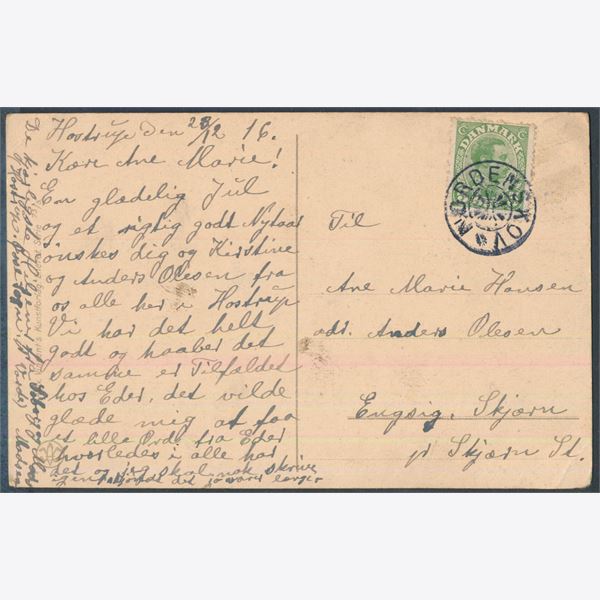 Hostrup den 23/12 16.
Kære Ane Marie!
En glædelig Jul
og et rigtig godt Nytaar
ønskes dig og Kirstine
og Anders Olesen fra
os alle her i Hostrup
Vi har det helt
godt og haaber det
samme er Tilfældet
hos Eder, det vilde
glæde mig at faa
et lille Ord fra Eder
hvorledes i alle har
det og jeg skal nok skrive
igen
De kjærligste Hilsener fra
DANMARK
NORDENSKOV
Til
Ane Marie Hansen
adr. Anders Olesen
Engsig, Skjærn
pr Skjærn St.